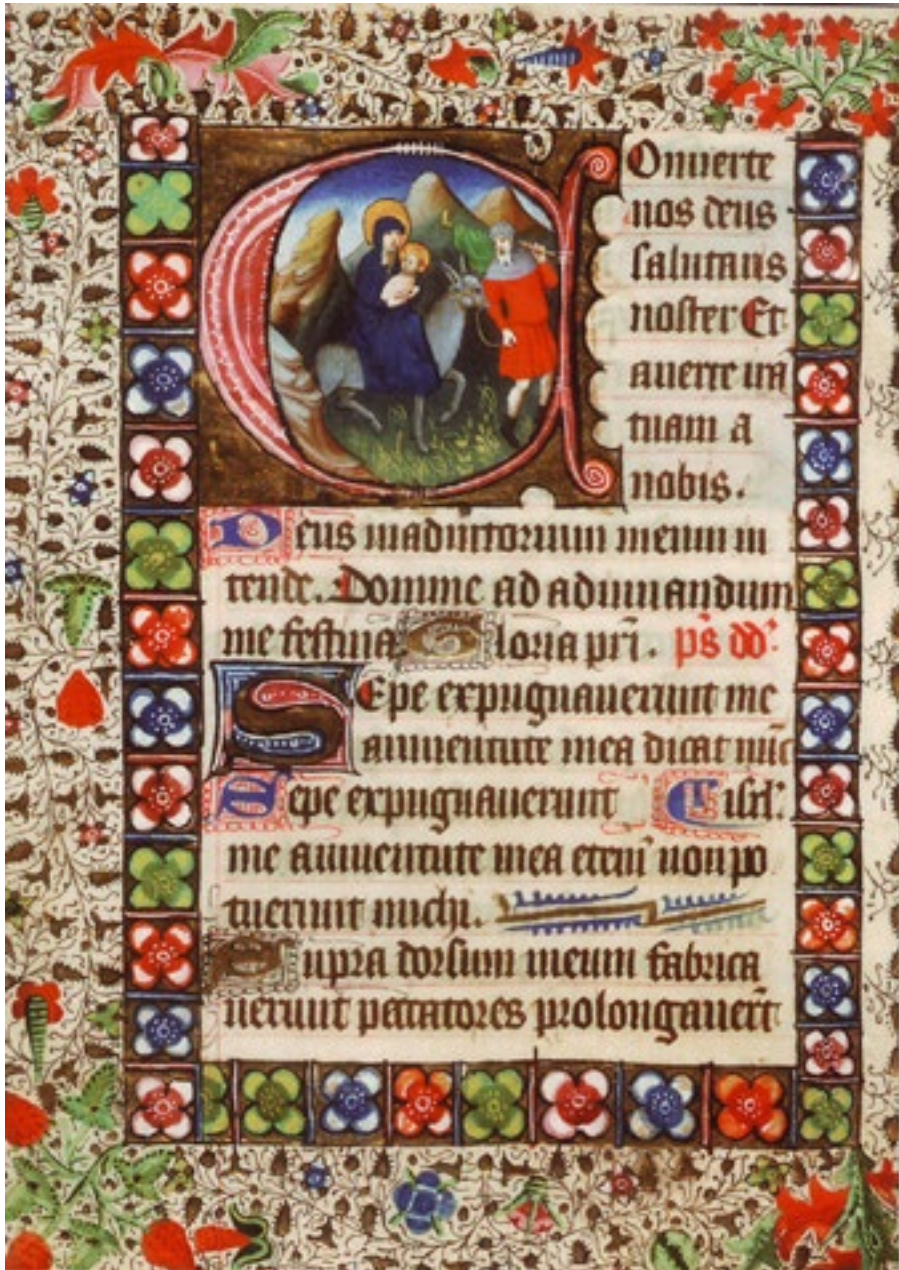 Conuerte
nos deus
salutaris
noster Et
auerte irā
tuam a
nobis.
Deus in adiutorium meum in
tende. Domine ad adiuuandum
me festina Gloria pr̄i. ps̄ dd̄.
Sepe expugnauerunt me
a iuuentute mea dicat nūc
Sepe expugnauerunt isrl'.
me a iuuentute mea eteni̅ non po
tuerunt michi.
Supra dorsum meum fabrica
uerunt peccatores prolongauer̄t